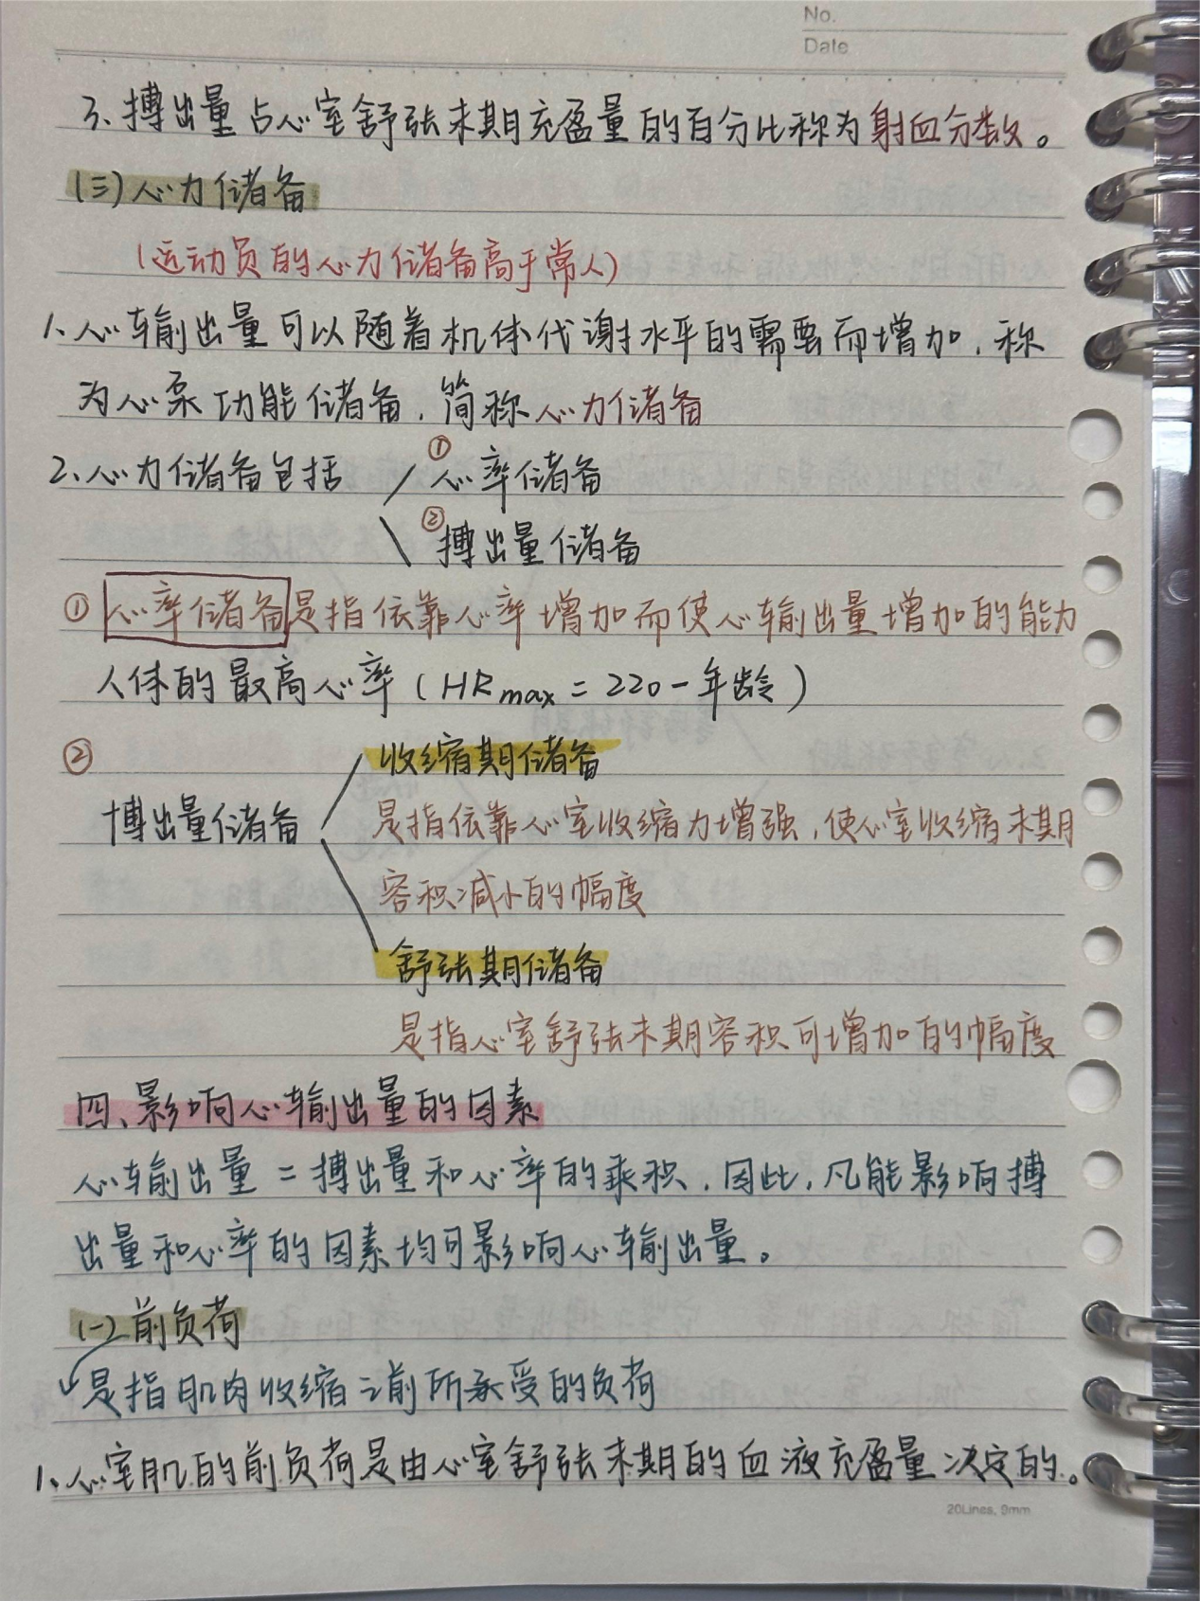 No.
Date
3、搏出量占心室舒张末期充盈量的百分比称为射血分数。
(三)心力储备
(运动员的心力储备高于常人)
1、心输出量可以随着机体代谢水平的需要而增加，称
为心泵功能储备，简称心力储备
2、心力储备包括
①心率储备
②搏出量储备
①心率储备是指依靠心率增加而使心输出量增加的能力
人体的最高心率(HRmax=220-年龄)
②
收缩期储备
搏出量储备
是指依靠心室收缩力增强，使心室收缩末期
容积减小的幅度
舒张期储备
是指心室舒张末期容积可增加的幅度
四、影响心输出量的因素
心输出量=搏出量和心率的乘积，因此，凡能影响搏
出量和心率的因素均可影响心输出量。
(一)前负荷
是指肌肉收缩之前所承受的负荷
1、心室肌的前负荷是由心室舒张末期的血液充盈量决定的。
20Lines, 9mm